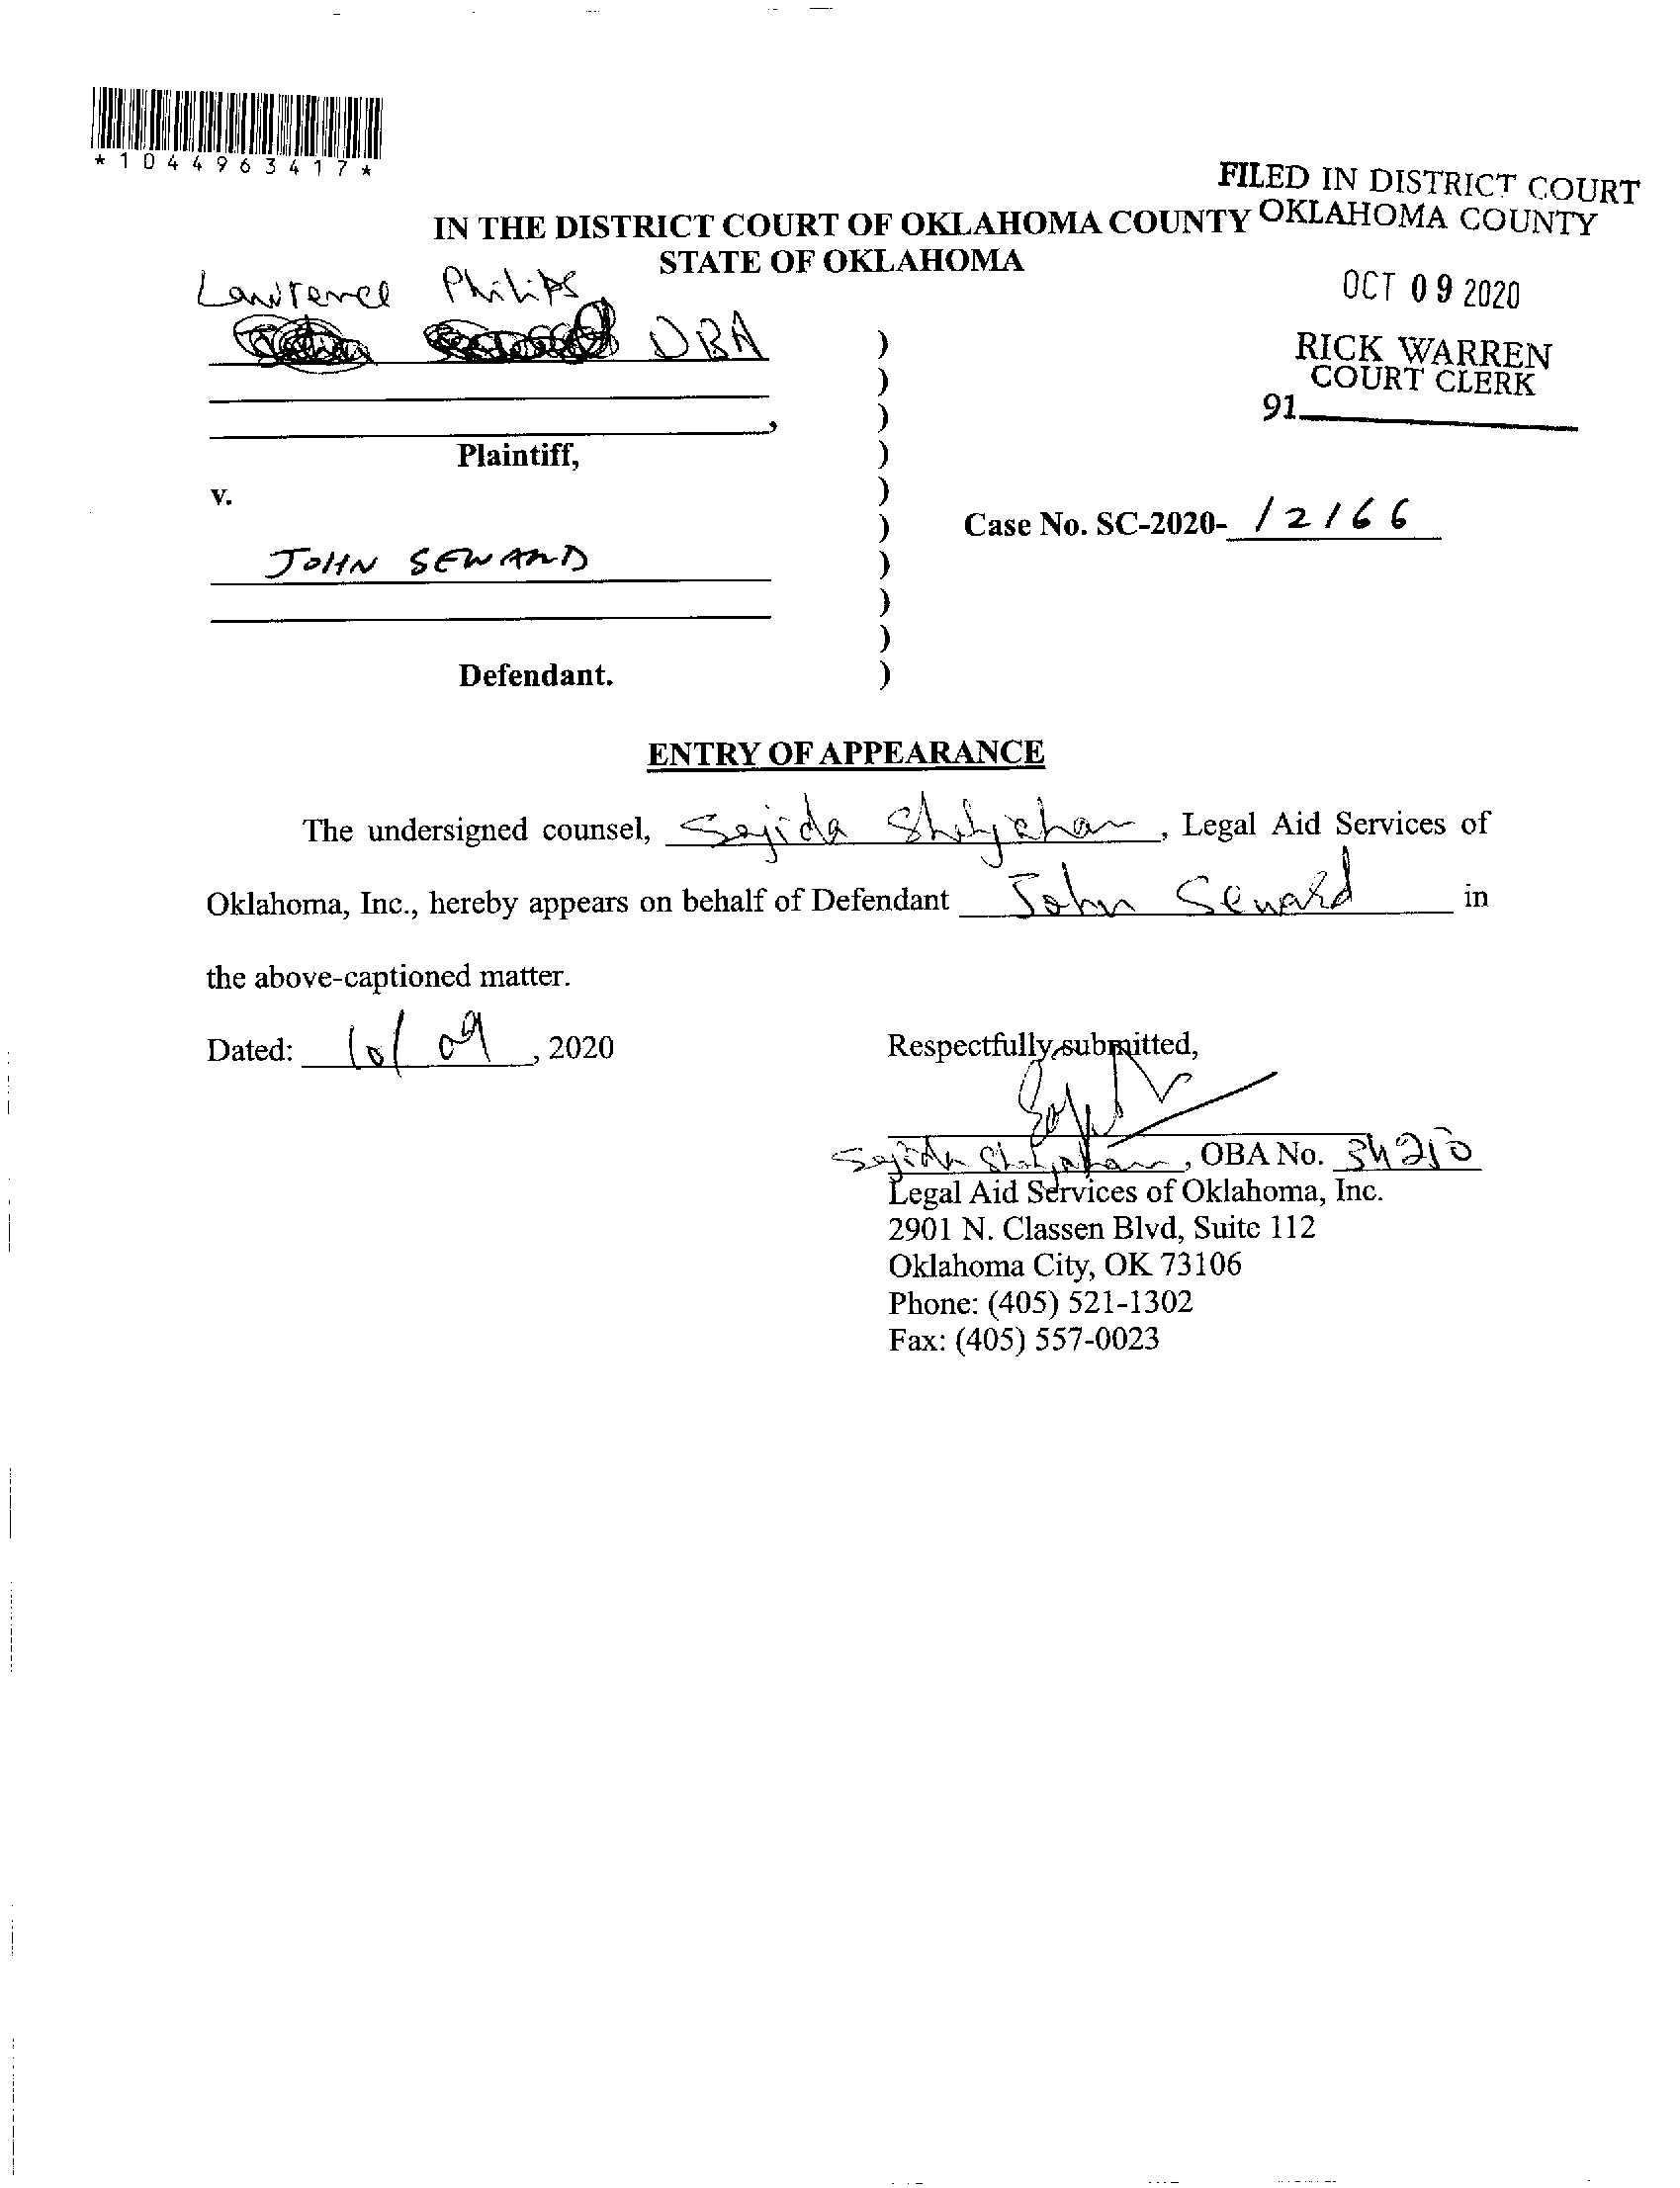 *1044963417*
FILED IN DISTRICT COURT
OKLAHOMA COUNTY
IN THE DISTRICT COURT OF OKLAHOMA COUNTY
STATE OF OKLAHOMA
OCT 09 2020
RICK WARREN
COURT CLERK
91
Lawrence Philips
DBA )
)
, )
Plaintiff, )
v. )
Case No. SC-2020- 12166 )
JOHN SEWARD )
)
)
Defendant. )
ENTRY OF APPEARANCE
The undersigned counsel, Sajida Shahjahan, Legal Aid Services of
Oklahoma, Inc., hereby appears on behalf of Defendant John Seward in
the above-captioned matter.
Dated: 10/09, 2020
Respectfully submitted,
Sajida Shahjahan, OBA No. 34210
Legal Aid Services of Oklahoma, Inc.
2901 N. Classen Blvd, Suite 112
Oklahoma City, OK 73106
Phone: (405) 521-1302
Fax: (405) 557-0023